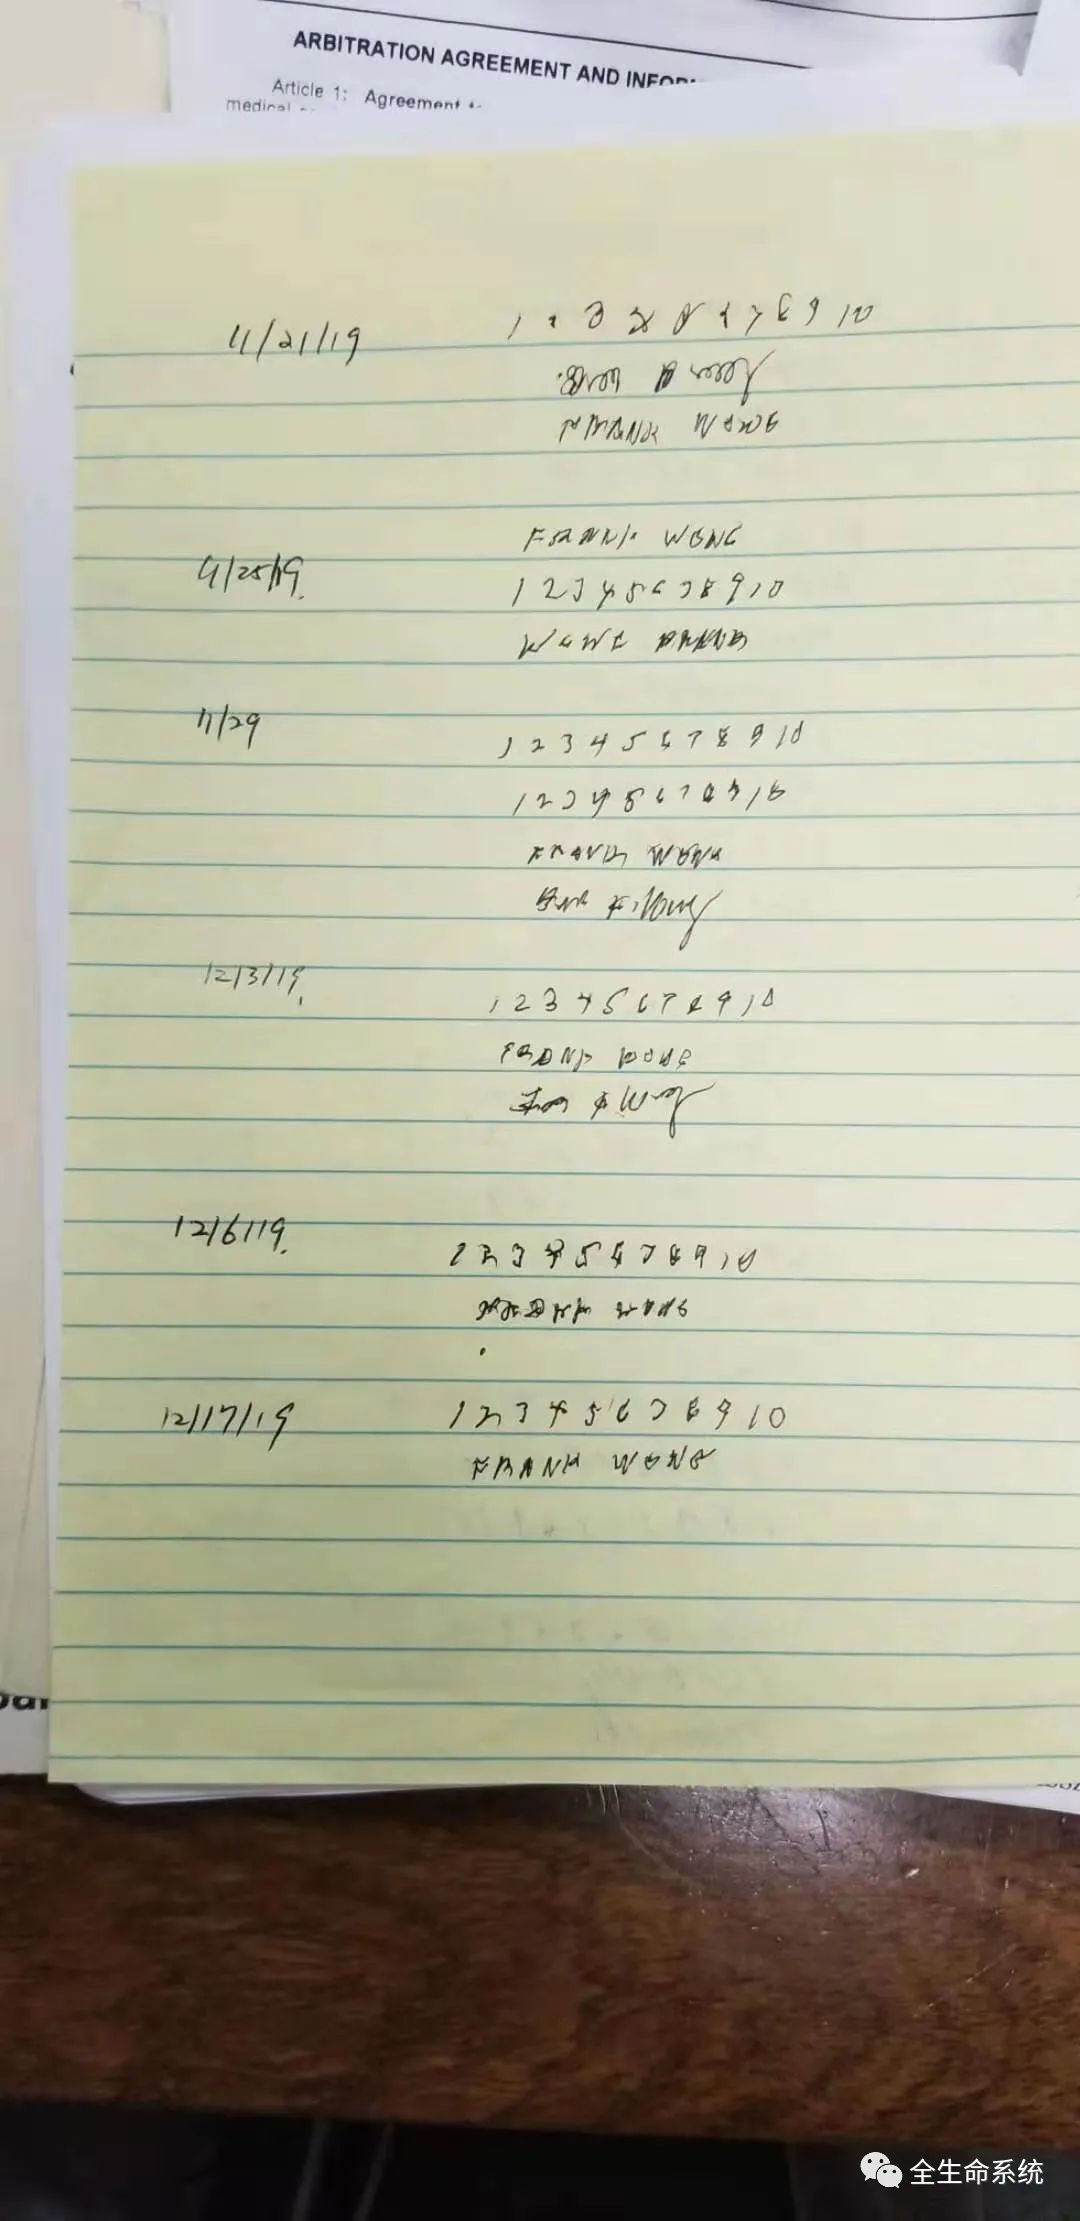 ARBITRATION AGREEMENT AND INFOR
Article 1: Agreement to
medical
11/21/19
1 2 3 4 5 6 7 8 9 10
FRANK WONG
11/25/19.
FRANK WONG
1 2 3 4 5 6 7 8 9 10
WONG FRANK
11/29
1 2 3 4 5 6 7 8 9 10
1 2 3 4 5 6 7 8 9 10
FRANK WONG
12/3/19.
1 2 3 4 5 6 7 8 9 10
FRANK WONG
12/6/19.
1 2 3 4 5 6 7 8 9 10
12/17/19
1 2 3 4 5 6 7 8 9 10
FRANK WONG
全生命系统